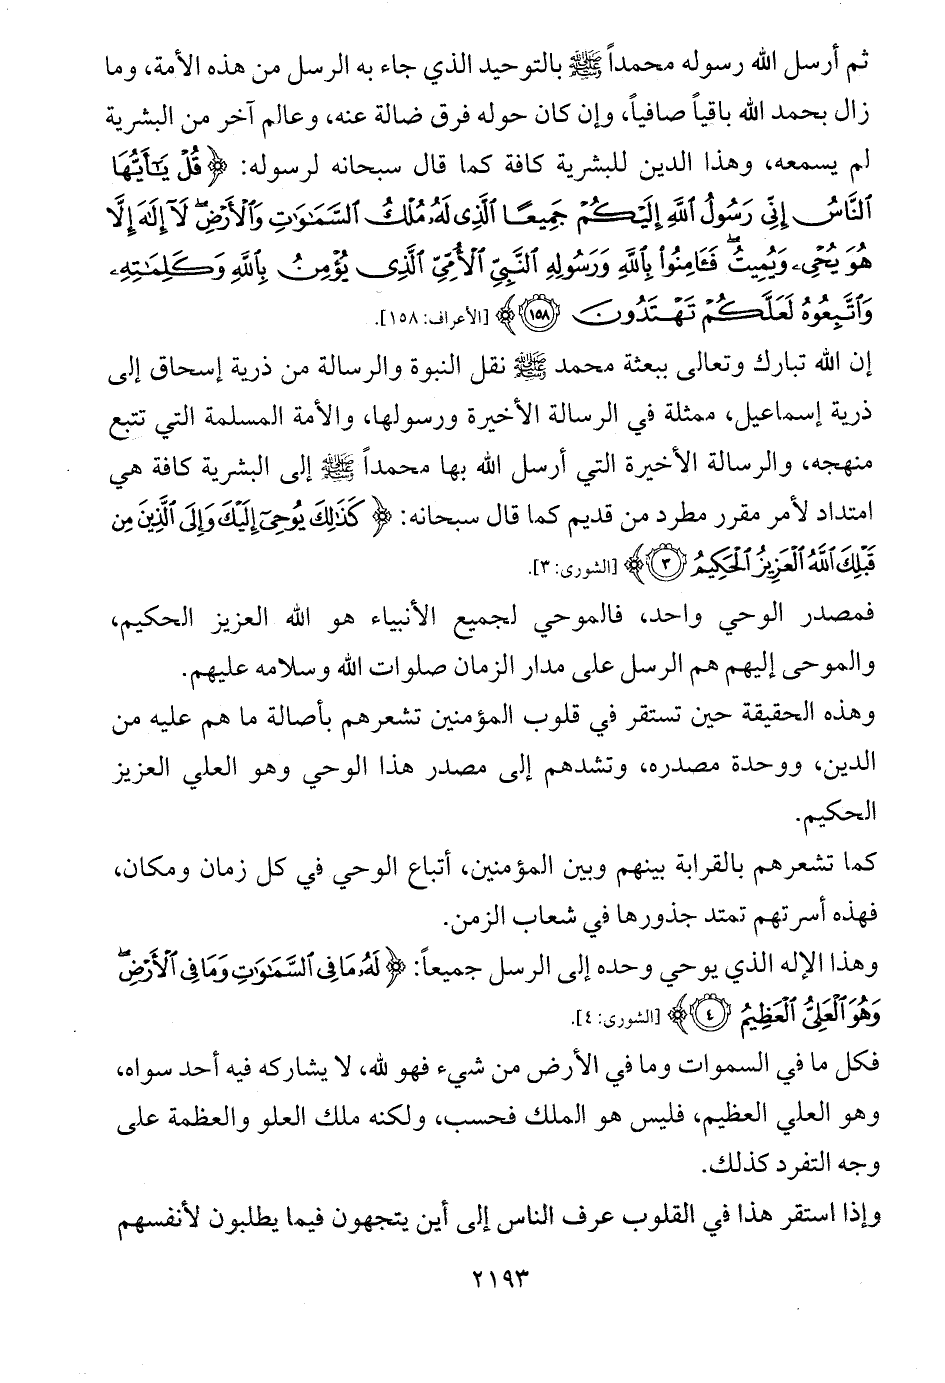 ثم أرسل الله رسوله محمداً ﷺ بالتوحيد الذي جاء به الرسل من هذه الأمة، وما
زال بحمد الله باقياً صافياً، وإن كان حوله فرق ضالة عنه، وعالم آخر من البشرية
لم يسمعه، وهذا الدين للبشرية كافة كما قال سبحانه لرسوله: ﴿ قُلْ يَٰٓأَيُّهَا
ٱلنَّاسُ إِنِّي رَسُولُ ٱللَّهِ إِلَيْكُمْ جَمِيعًا ٱلَّذِي لَهُۥ مُلْكُ ٱلسَّمَٰوَٰتِ وَٱلْأَرْضِۖ لَآ إِلَٰهَ إِلَّا
هُوَ يُحْيِۦ وَيُمِيتُۖ فَـَٔامِنُوا۟ بِٱللَّهِ وَرَسُولِهِ ٱلنَّبِيِّ ٱلْأُمِّيِّ ٱلَّذِي يُؤْمِنُ بِٱللَّهِ وَكَلِمَٰتِهِۦ
وَٱتَّبِعُوهُ لَعَلَّكُمْ تَهْتَدُونَ ١٥٨ ﴾ [الأعراف: ١٥٨].
إن الله تبارك وتعالى ببعثة محمد ﷺ نقل النبوة والرسالة من ذرية إسحاق إلى
ذرية إسماعيل، ممثلة في الرسالة الأخيرة ورسولها، والأمة المسلمة التي تتبع
منهجه، والرسالة الأخيرة التي أرسل الله بها محمداً ﷺ إلى البشرية كافة هي
امتداد لأمر مقرر مطرد من قديم كما قال سبحانه: ﴿ كَذَٰلِكَ يُوحِيٓ إِلَيْكَ وَإِلَى ٱلَّذِينَ مِن
قَبْلِكَ ٱللَّهُ ٱلْعَزِيزُ ٱلْحَكِيمُ ٣ ﴾ [الشورى: ٣].
فمصدر الوحي واحد، فالموحي لجميع الأنبياء هو الله العزيز الحكيم،
والموحى إليهم هم الرسل على مدار الزمان صلوات الله وسلامه عليهم.
وهذه الحقيقة حين تستقر في قلوب المؤمنين تشعرهم بأصالة ما هم عليه من
الدين، ووحدة مصدره، وتشدهم إلى مصدر هذا الوحي وهو العلي العزيز
الحكيم.
كما تشعرهم بالقرابة بينهم وبين المؤمنين، أتباع الوحي في كل زمان ومكان،
فهذه أسرتهم تمتد جذورها في شعاب الزمن.
وهذا الإله الذي يوحي وحده إلى الرسل جميعاً: ﴿ لَهُۥ مَا فِي ٱلسَّمَٰوَٰتِ وَمَا فِي ٱلْأَرْضِۖ
وَهُوَ ٱلْعَلِيُّ ٱلْعَظِيمُ ٤ ﴾ [الشورى: ٤].
فكل ما في السموات وما في الأرض من شيء فهو لله، لا يشاركه فيه أحد سواه،
وهو العلي العظيم، فليس هو الملك فحسب، ولكنه ملك العلو والعظمة على
وجه التفرد كذلك.
وإذا استقر هذا في القلوب عرف الناس إلى أين يتجهون فيما يطلبون لأنفسهم
٢١٩٣